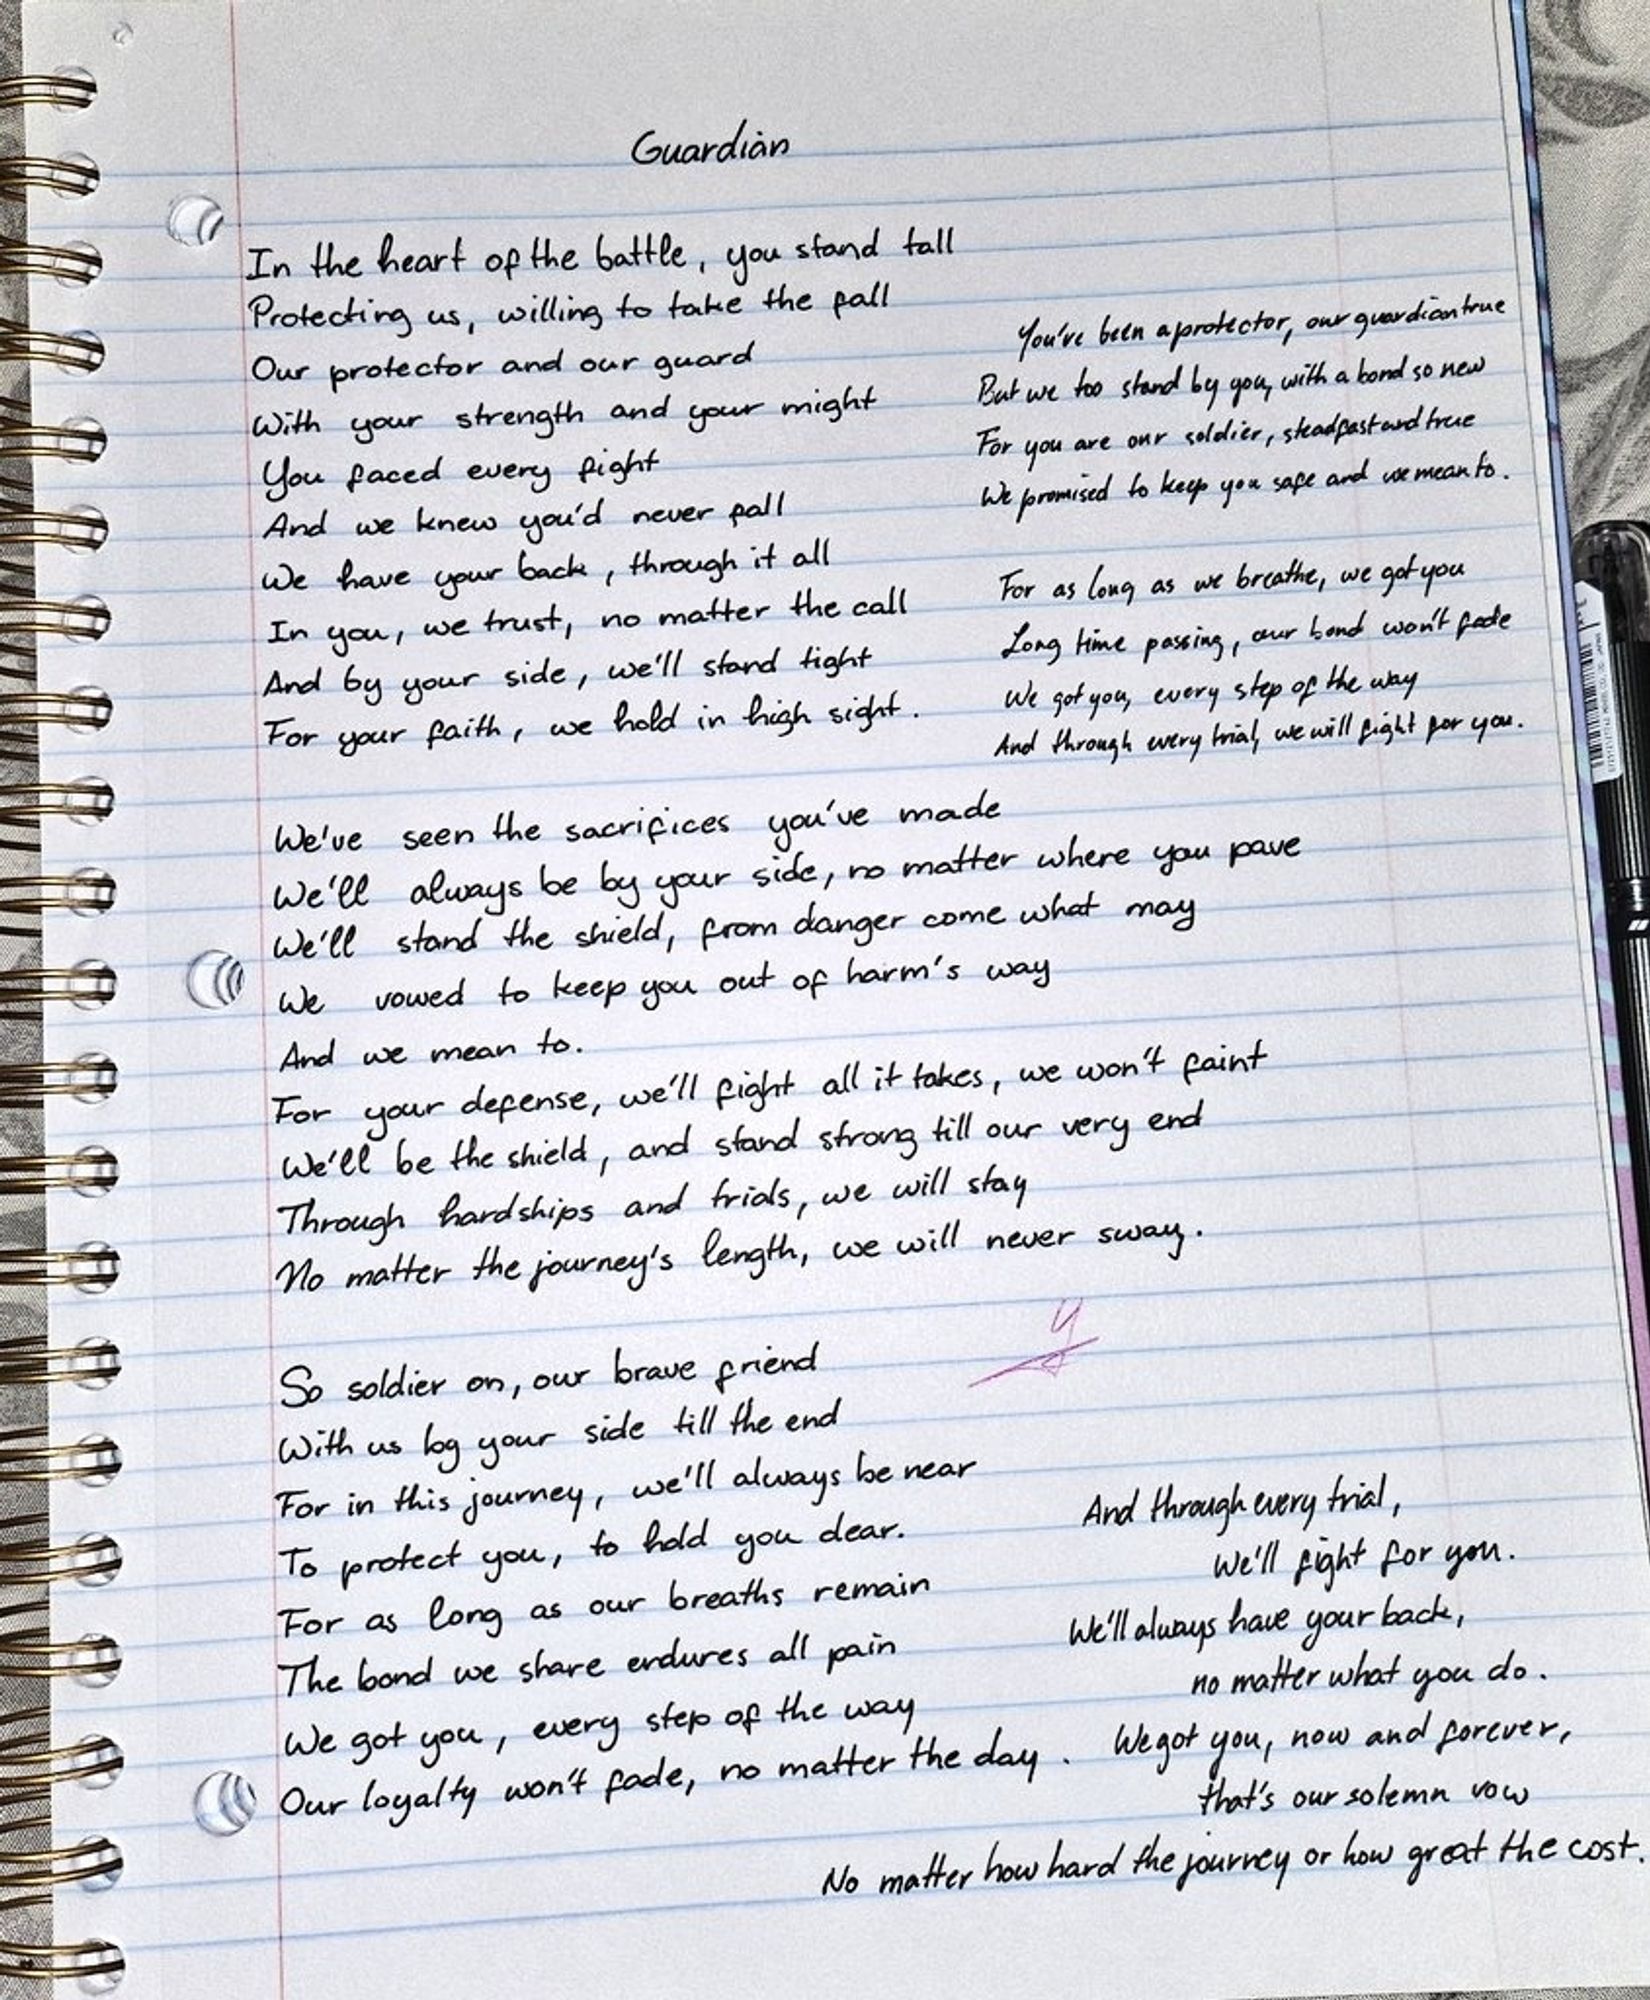 Guardian
In the heart of the battle, you stand tall
Protecting us, willing to take the fall
Our protector and our guard
With your strength and your might
You faced every fight
And we knew you'd never fall
We have your back, through it all
In you, we trust, no matter the call
And by your side, we'll stand tight
For your faith, we hold in high sight.
You've been a protector, our guardian true
But we too stand by you, with a bond so new
For you are our soldier, steadfast and true
We promised to keep you safe and we mean to.
For as long as we breathe, we got you
Long time passing, our bond won't fade
We got you, every step of the way
And through every trial, we will fight for you.
We've seen the sacrifices you've made
We'll always be by your side, no matter where you pave
We'll stand the shield, from danger come what may
We vowed to keep you out of harm's way
And we mean to.
For your defense, we'll fight all it takes, we won't faint
We'll be the shield, and stand strong till our very end
Through hardships and trials, we will stay
No matter the journey's length, we will never sway.
So soldier on, our brave friend
With us by your side till the end
For in this journey, we'll always be near
To protect you, to hold you dear.
For as long as our breaths remain
The bond we share endures all pain
We got you, every step of the way
Our loyalty won't fade, no matter the day.
And through every trial,
We'll fight for you.
We'll always have your back,
no matter what you do.
We got you, now and forever,
that's our solemn vow
No matter how hard the journey or how great the cost.